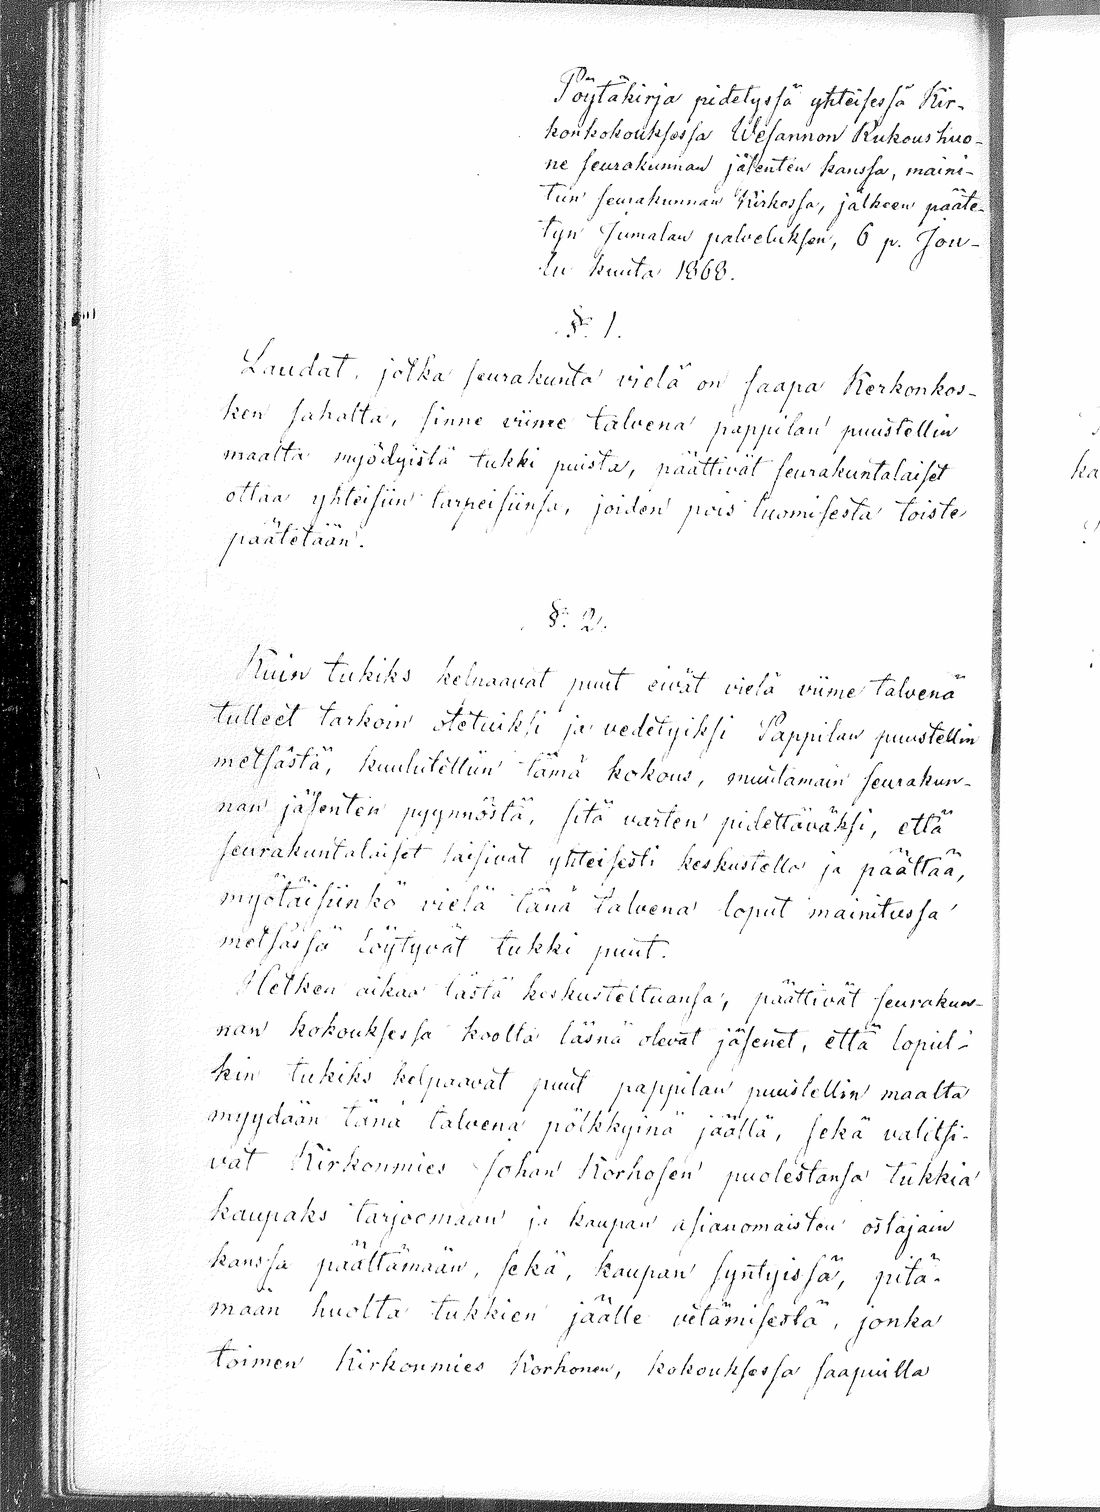 Pöytäkirja pidetyssä yhteisessä Kir-
konkokouksessa Wesannon Rukoushuo-
ne seurakunnan jäsenten kanssa, maini-
tun seurakunnan Kirkossa, jälkeen pääte-
tyn Jumalan palveluksen, 6 p. Jou-
lu kuuta 1868.
§. 1.
Laudat, jotka seurakunta vielä on saapa Kerkonkos-
ken sahalta, sinne viime talvena pappilan puustellin
maalta myödyistä tukki puista, päättivät seurakuntalaiset
ottaa yhteisiin tarpeisiinsa, joiden pois tuomisesta toiste
päätetään.
§. 2.
Kuin tukiks kelpaavat puut eivät vielä viime talvena
tulleet tarkoin otetuiksi ja vedetyiksi Pappilan puustellin
metsästä, kuulutettiin tämä kokous, muutamain seurakun-
nan jäsenten pyynnöstä, sitä varten pidettäväksi, että
seurakuntalaiset saisivat yhteisesti keskustella ja päättää,
myötäisiinkö vielä tänä talvena loput mainitussa
metsässä löytyvät tukki puut.
Hetken aikaa tästä keskusteltuansa, päättivät seurakun-
nan kokouksessa koolla läsnä olevat jäsenet, että loput-
kin tukiks kelpaavat puut pappilan puustellin maalta
myydään tänä talvena pölkkyinä jäällä, sekä valitsi-
vat Kirkonmies Johan Korhosen puolestansa tukkia
kaupaks tarjoomaan ja kaupan asianomaisten ostajain
kanssa päättämään, sekä, kaupan syntyissä, pitä-
mään huolta tukkien jäälle vetämisestä, jonka
toimen Kirkonmies Korhonen, kokouksessa saapuilla